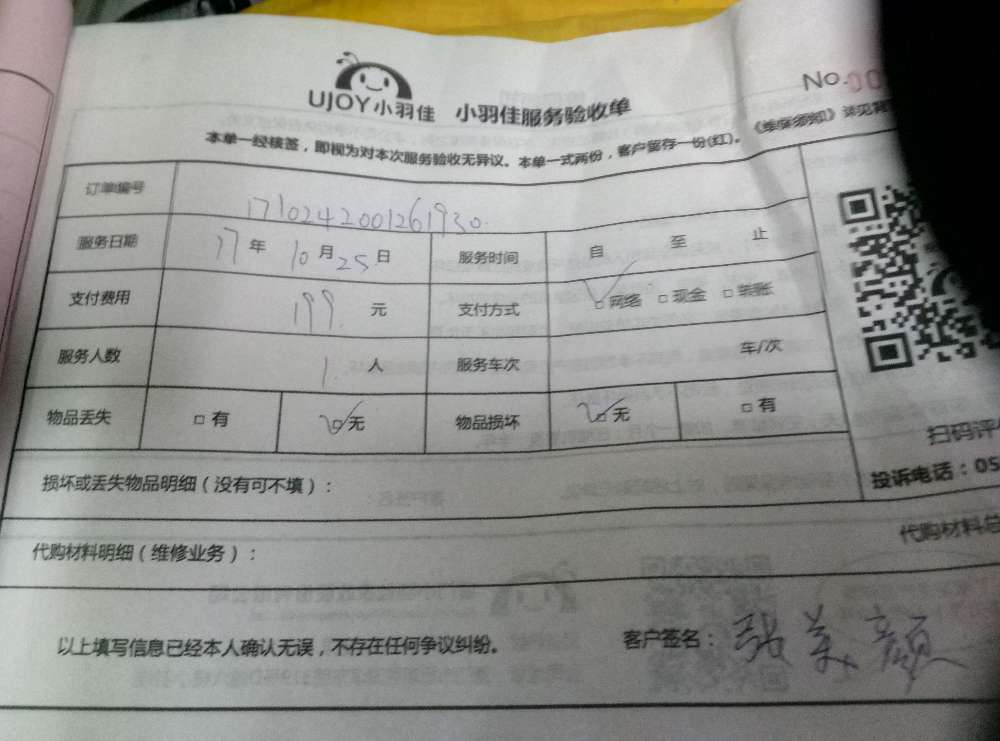 No.00
UJOY小羽佳 小羽佳服务验收单
本单一经核签，即视为对本次服务验收无异议。本单一式两份，客户留存一份(红)。《维保须知》详见背
订单编号 1710242001261930
服务日期 17年10月25日 服务时间 自 至 止
支付费用 199 元 支付方式 ☑网络 □现金 □转账
服务人数 1 人 服务车次 车/次
物品丢失 □有 ☑无 物品损坏 ☑无 □有
扫码评
损坏或丢失物品明细（没有可不填）： 投诉电话：05
代购材料明细（维修业务）： 代购材料总
以上填写信息已经本人确认无误，不存在任何争议纠纷。 客户签名：张美颜